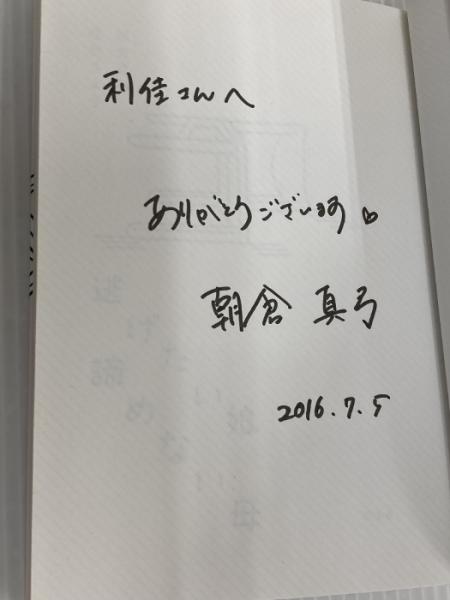 利佳さんへ
ありがとうございます♡
朝倉 真弓
2016.7.5
逃げたい娘
諦めない母